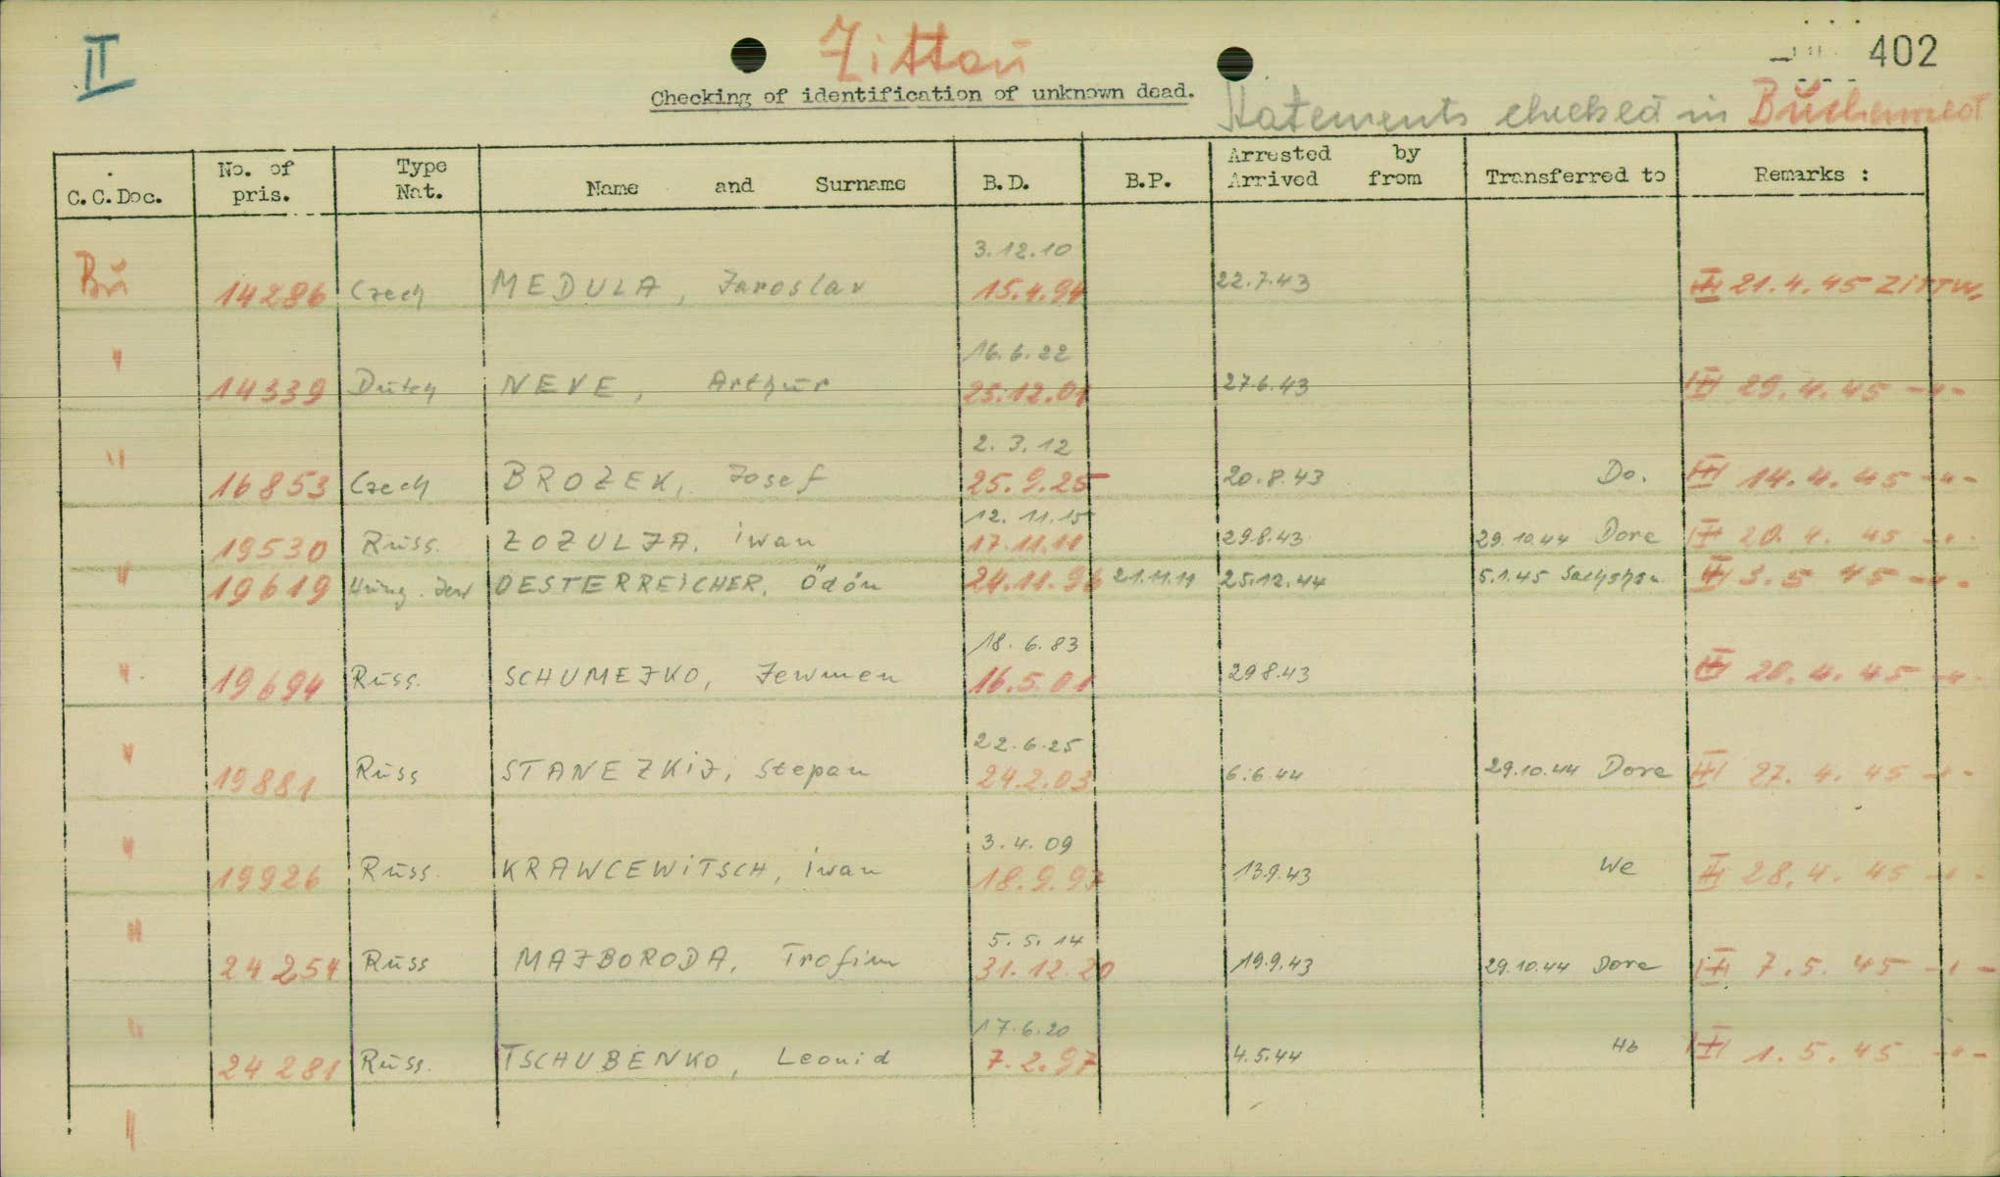 II
Zittau
402
Checking of identification of unknown dead.
Statements checked in Buchenwald
C.C.Doc. No. of pris. Type Nat. Name and Surname B.D. B.P. Arrested by Arrived from Transferred to Remarks :
3.12.10
Bu 14286 Czech MEDULA, Jaroslav 15.4.94 22.7.43 21.4.45 Zittau
16.6.22
" 14339 Dutch NEVE, Arthur 25.12.01 27.6.43 29.4.45 -"-
2.3.12
" 16853 Czech BROZEK, Josef 25.9.25 20.8.43 Do. 14.4.45 -"-
12.11.15
19530 Russ. ZOZULJA, iwan 17.11.11 29.8.43 29.10.44 Dora 20.4.45 -"-
" 19619 Hung. Jew OESTERREICHER, Ödön 24.11.96 21.11.11 25.12.44 5.1.45 3.5 45 -"-
18.6.83
" 19694 Russ. SCHUMEJKO, Jewmen 16.5.01 29.8.43 20.4.45 -"-
22.6.25
" 19881 Russ STANEZKIJ, Stepan 24.2.03 6.6.44 29.10.44 Dora 27.4.45 -"-
3.4.09
" 19926 Russ. KRAWCEWITSCH, iwan 18.9.97 13.9.43 We 28.4.45 -"-
5.5.14
" 24254 Russ MAJBORODA, Trofim 31.12.20 19.9.43 29.10.44 Dora 7.5.45 -"-
17.6.20
" 24281 Russ. TSCHUBENKO, Leonid 7.2.97 4.5.44 Hb 1.5.45 -"-
"